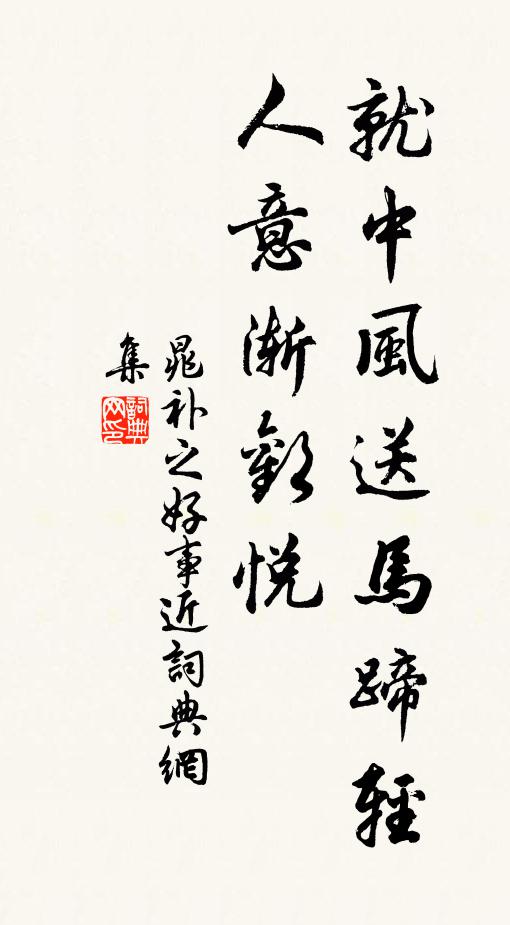 就中風送馬蹄輕
人意漸歡悅
晁補之好事近詞典網
集
詞典
網印